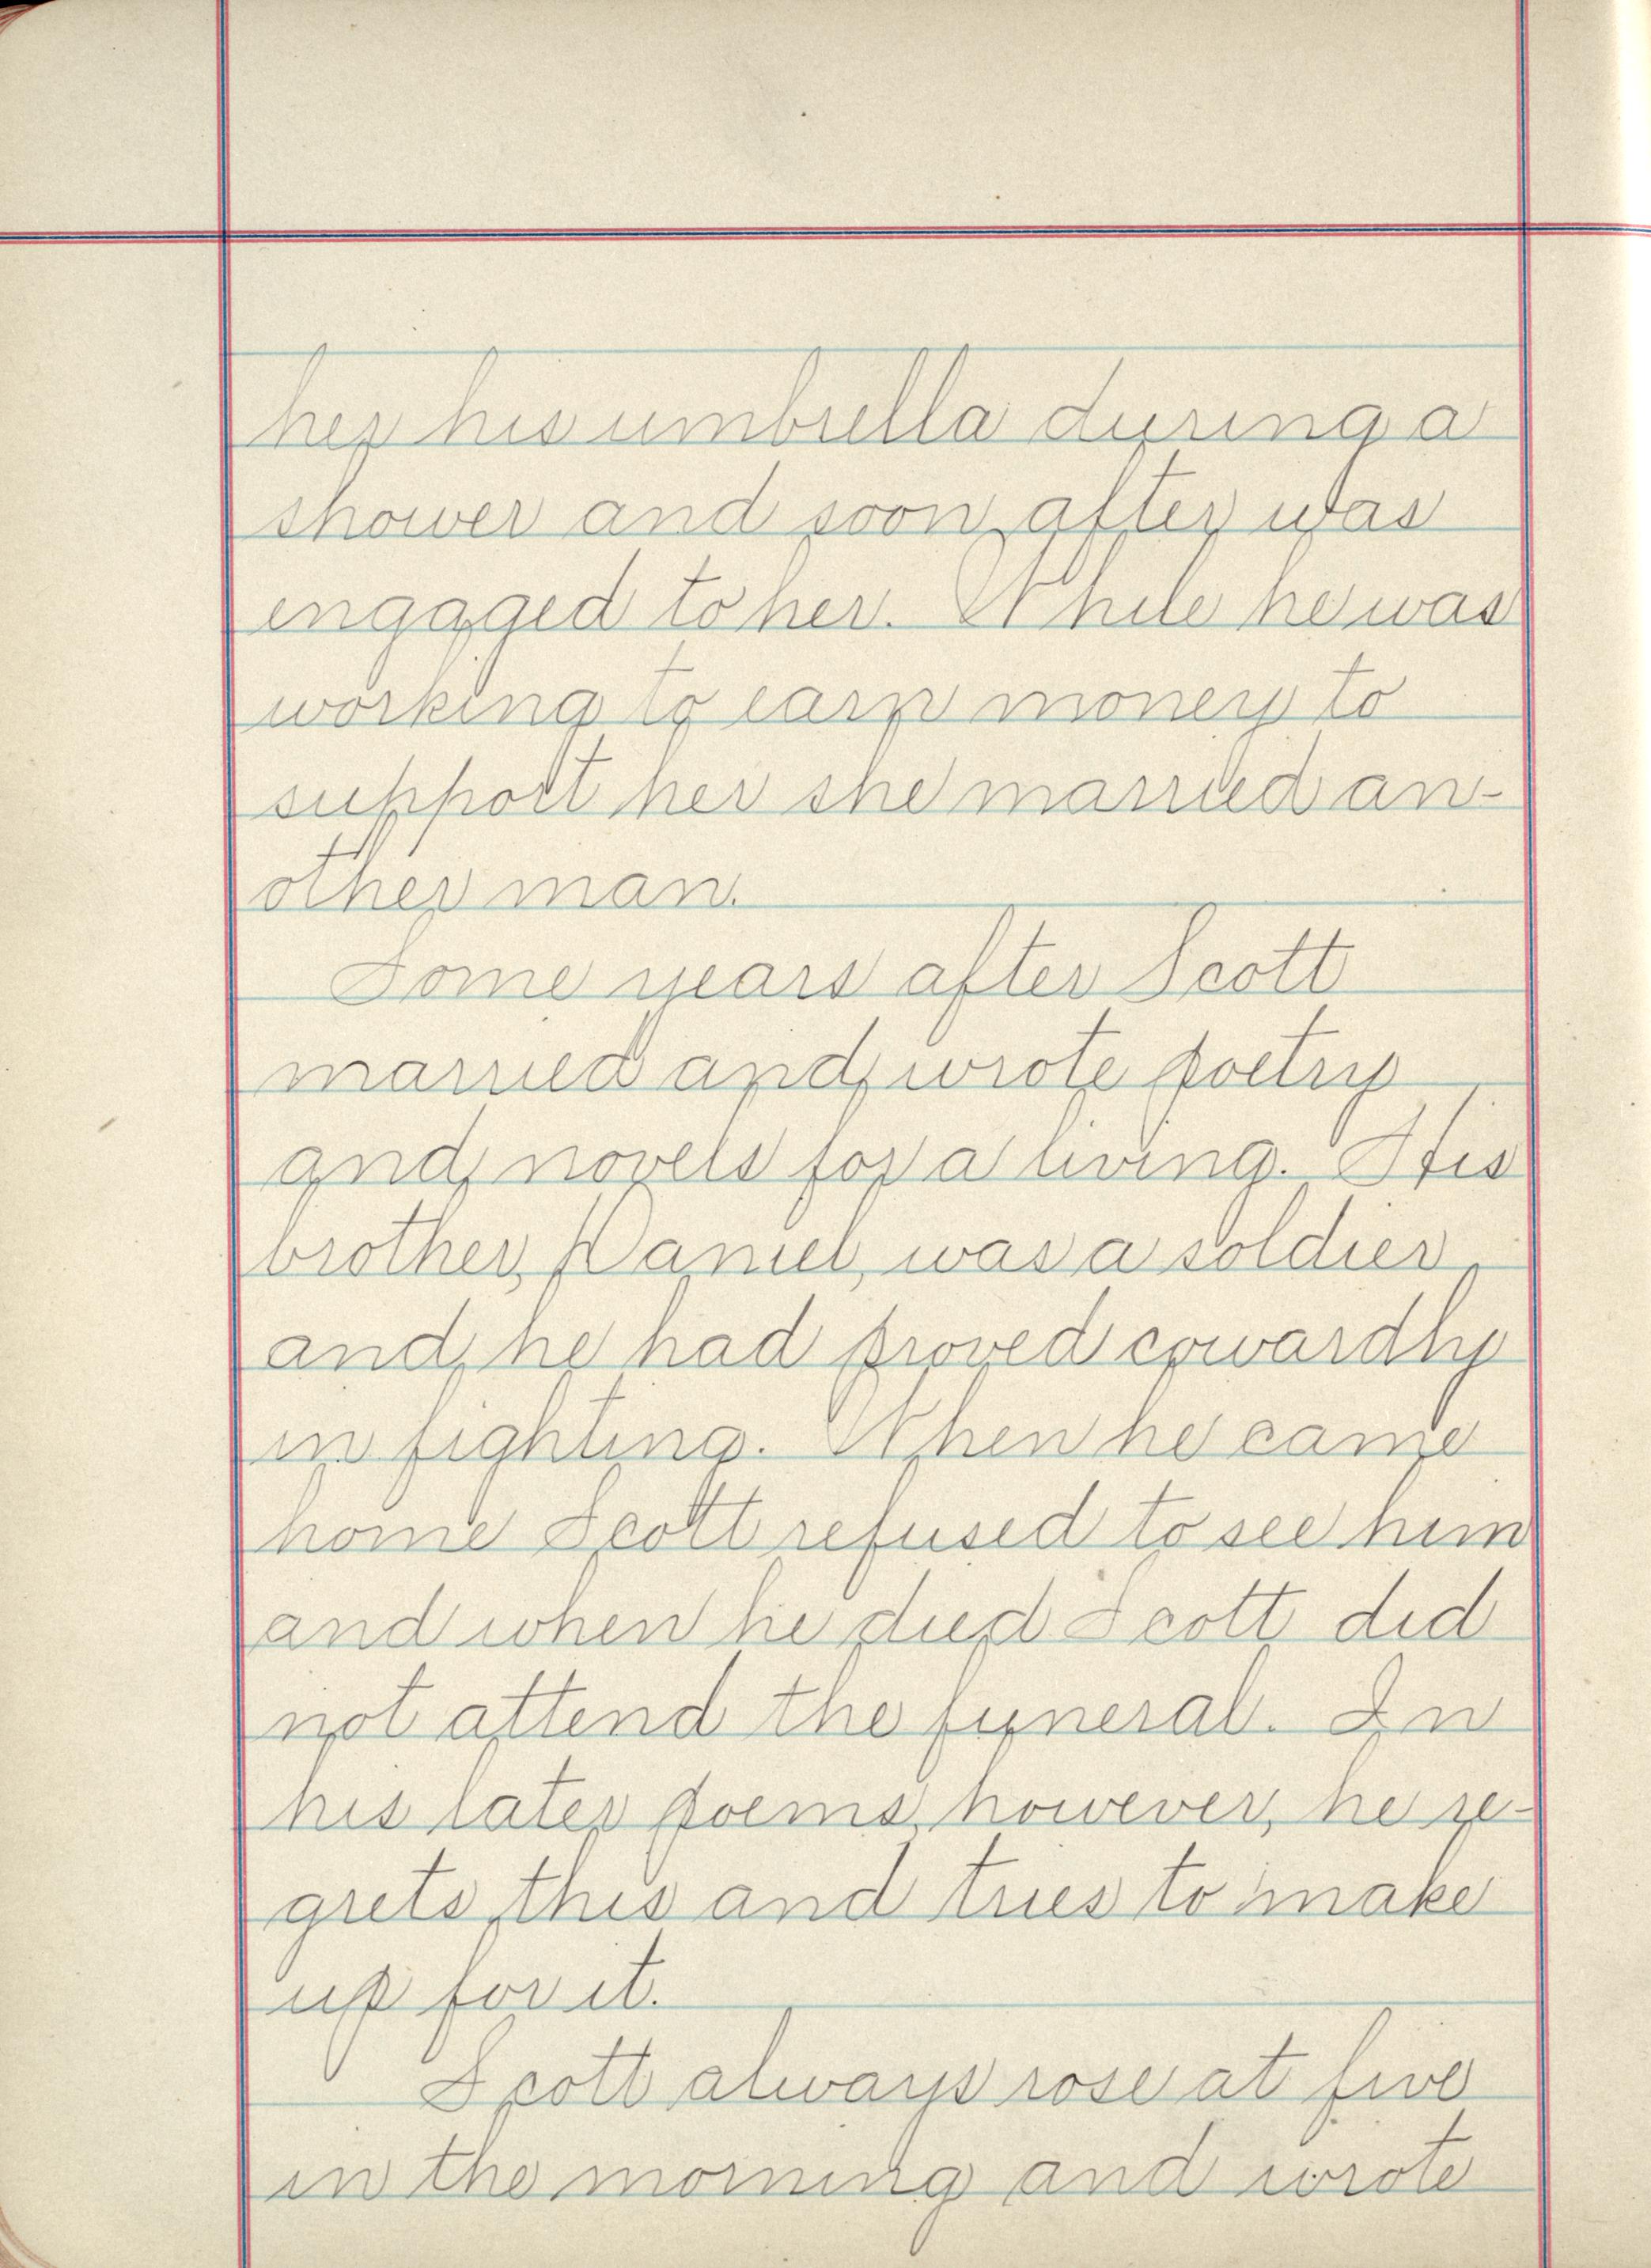 her his umbrella during a
shower and soon after was
engaged to her. While he was
working to earn money to
support her she married an-
other man.
Some years after Scott
married and wrote poetry
and novels for a living. His
brother, Daniel, was a soldier
and he had proved cowardly
in fighting. When he came
home Scott refused to see him
and when he died Scott did
not attend the funeral. In
his later poems, however, he re-
grets this and tries to make
up for it.
Scott always rose at five
in the morning and wrote